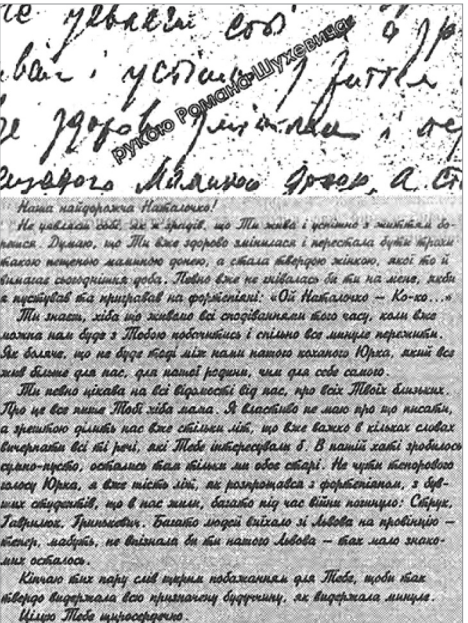 не уявляєш собі
і успішно з життям
вже здорово змінилася і пере
пещеною маминою донею, а ст
рукою Романа Шухевича
Наша найдорожча Наталочко!
Не уявляєш собі, як я зрадів, що Ти жива і успішно з життям бо-
решся. Думаю, що Ти вже здорово змінилася і перестала бути трохи
такою пещеною маминою донею, а стала твердою жінкою, якої то й
вимагає сьогоднішня доба. Певно вже не гнівалась би ти на мене, якби
я пустував та пригравав на фортепіяні: «Ой Наталочко — Ко-ко...»
Ти знаєш, хіба що живемо всі сподіваннями того часу, коли вже
можна нам буде з Тобою побачитись і спільно все минуле пережити.
Як боляче, що не буде тоді між нами нашого коханого Юрка, який все
жив більше для нас, для нашої родини, чим для себе самого.
Ти певно цікава на всі відомості від нас, про всіх Твоїх близьких.
Про це все пише Тобі хіба мама. Я властиво не маю про що писати,
а зрештою ділить нас вже стільки літ, що вже важко в кількох словах
вичерпати всі ті речі, які Тебе інтересували б. В нашій хаті зробилось
сумно-пусто, остались там тільки ми обоє старі. Не чути тенорового
голосу Юрка, я вже шість літ, як розпрощався з фортепіаном, з був-
ших студентів, що в нас жили, багато під час війни погинуло: Струк,
Гаврилюк, Гринькевич. Багато людей виїхало зі Львова на провінцію —
тепер, мабуть, не впізнала би ти нашого Львова — так мало знако-
мих осталось.
Кінчаю тих пару слів щирим побажанням для Тебе, щоби так
твердо видержала всю призначену будуччину, як видержала минуле.
Цілую Тебе щиросердечно.